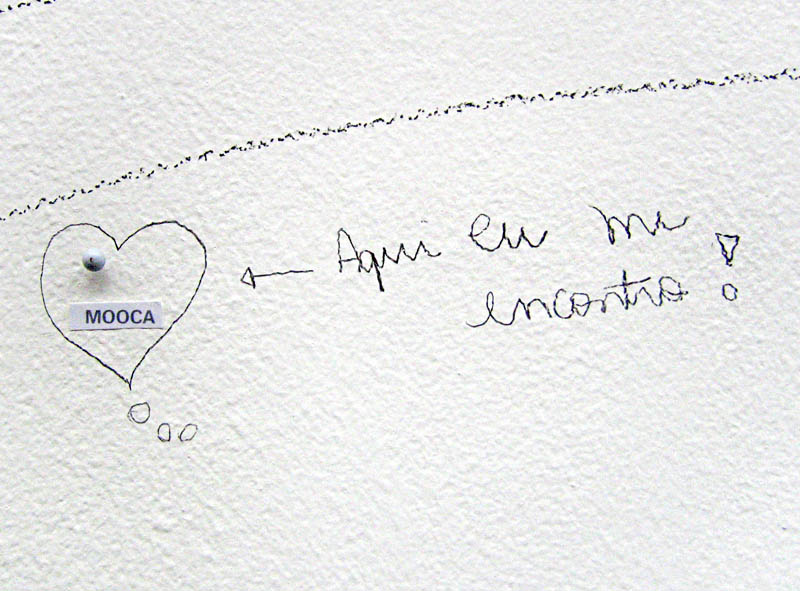 MOOCA
Aqui eu me
encontro!